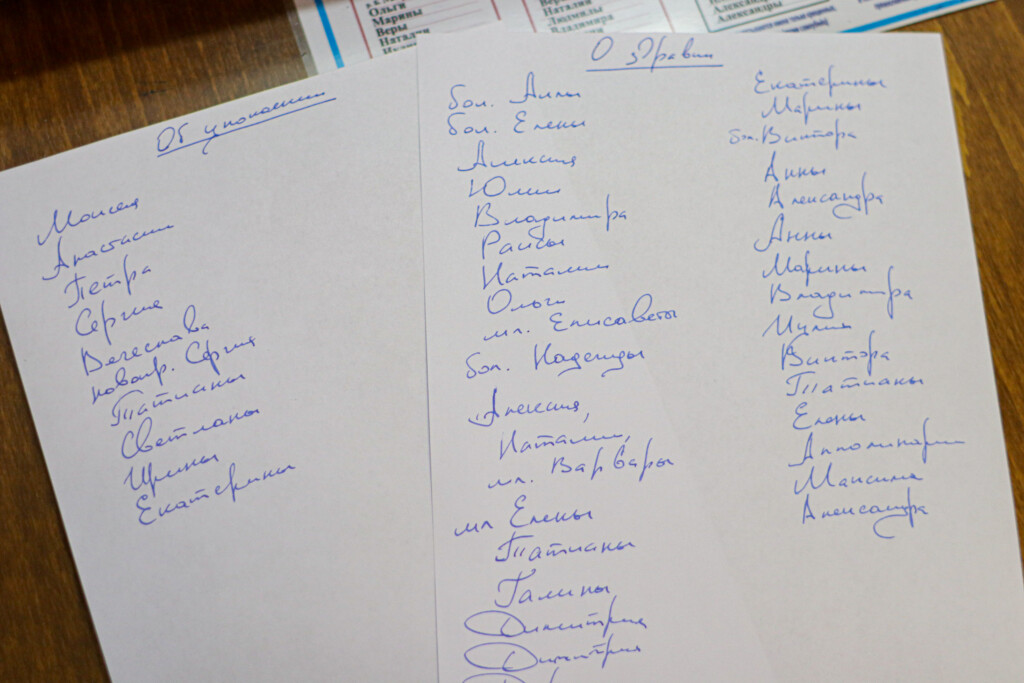 Ольги
Марины
Веры
Наталии
Людмилы
Владимира
Александры
Об упокоении
Моисея
Анастасии
Петра
Сергия
Вячеслава
новопр. Сергия
Татианы
Светланы
Ирины
Екатерины
О здравии
бол. Аллы
бол. Елены
Алексия
Юлии
Владимира
Раисы
Наталии
Ольги
мл. Елисаветы
бол. Надежды
Алексия,
Наталии,
мл. Варвары
мл Елены
Татианы
Галины
Димитрия
Димитрия
Екатерины
Марины
бол. Виктора
Анны
Александра
Анны
Марины
Владимира
Виктора
Татианы
Елены
Максима
Александра